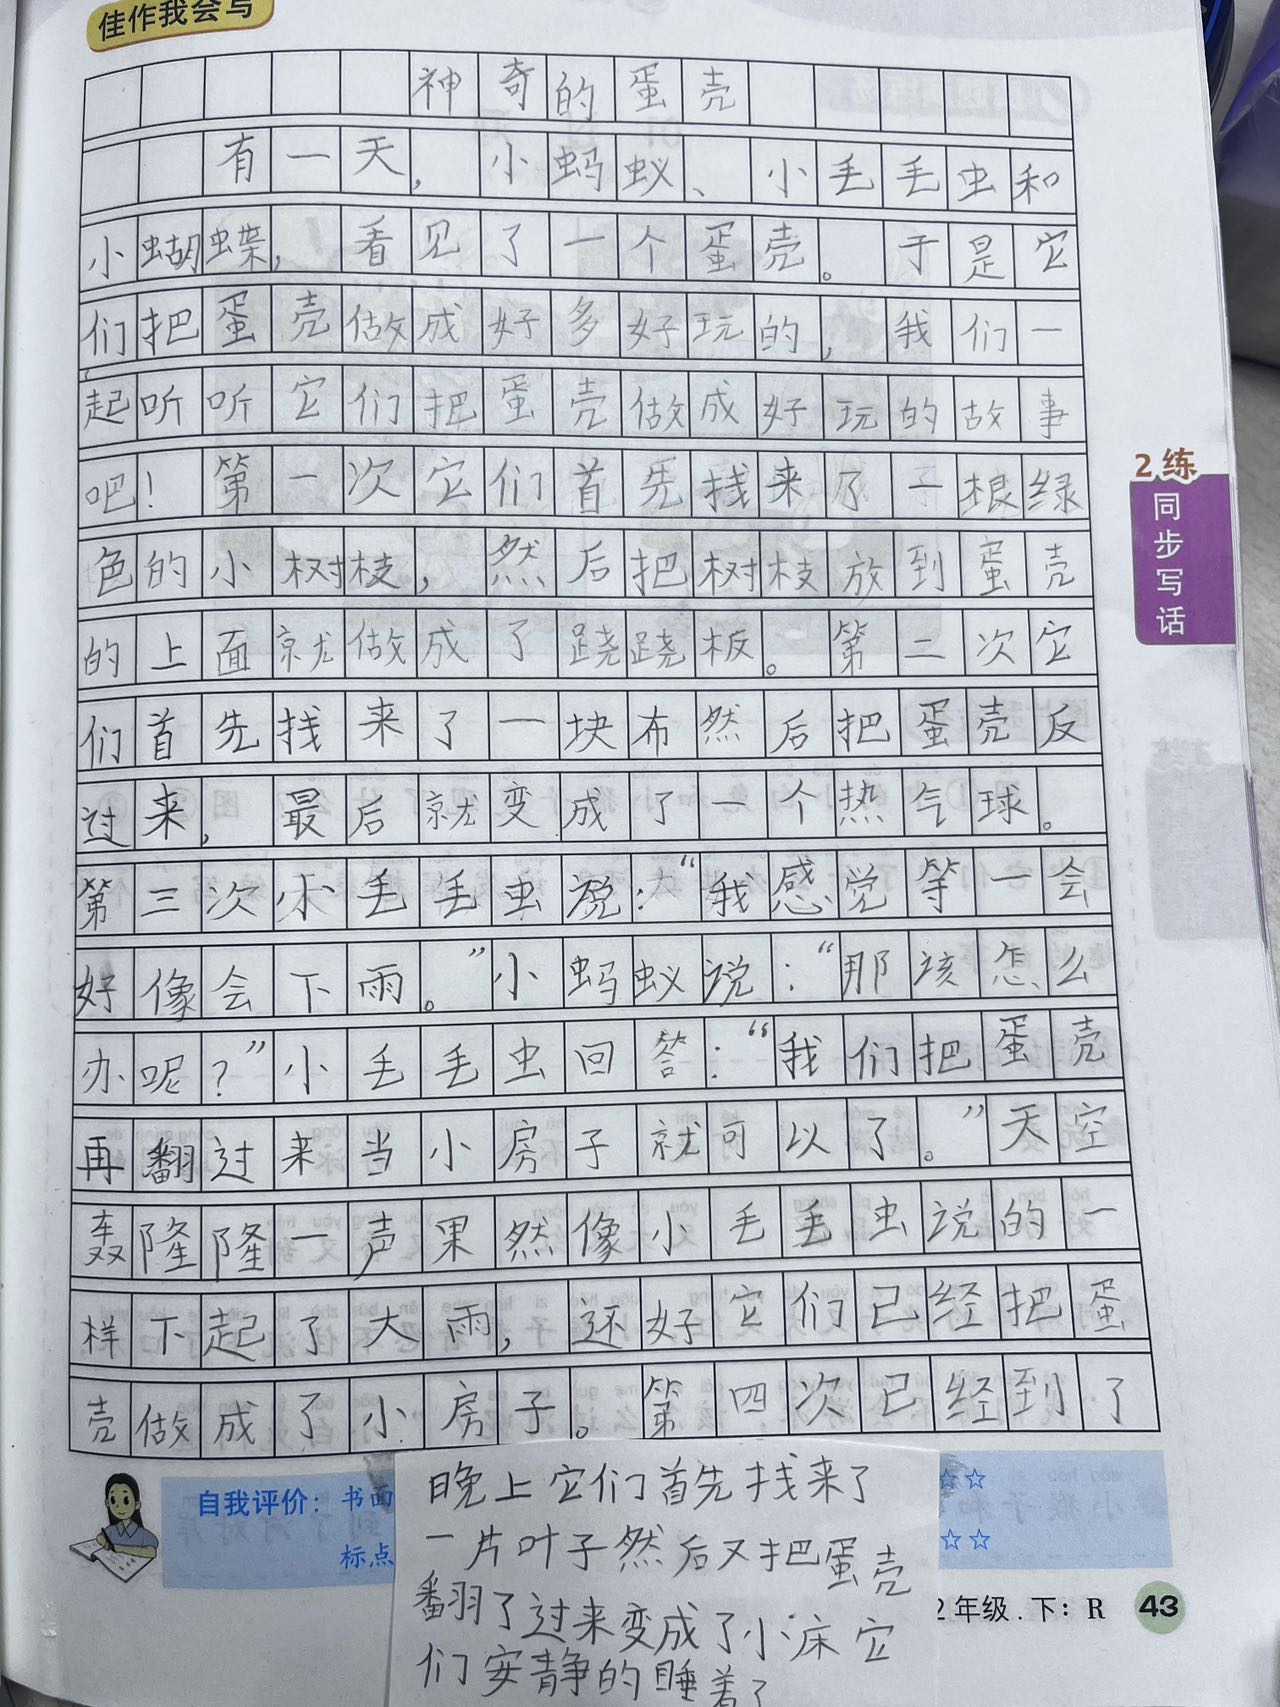 佳作我会写
神奇的蛋壳
有一天，小蚂蚁、小毛毛虫和
小蝴蝶，看见了一个蛋壳。于是它
们把蛋壳做成好多好玩的，我们一
起听听它们把蛋壳做成好玩的故事
吧！第一次它们首先找来了一根绿
色的小树枝，然后把树枝放到蛋壳
的上面就做成了跷跷板。第二次它
们首先找来了一块布然后把蛋壳反
过来，最后就变成了一个热气球。
第三次小毛毛虫说：“我感觉等一会
好像会下雨。”小蚂蚁说：“那该怎么
办呢？”小毛毛虫回答：“我们把蛋壳
再翻过来当小房子就可以了。”天空
轰隆隆一声果然像小毛毛虫说的一
样下起了大雨，还好它们已经把蛋
壳做成了小房子。第四次已经到了
晚上它们首先找来了
一片叶子然后又把蛋壳
翻了过来变成了小床它
们安静的睡着了
自我评价：书面
标点
☆☆
☆☆
2年级.下：R 43
2练
同步写话